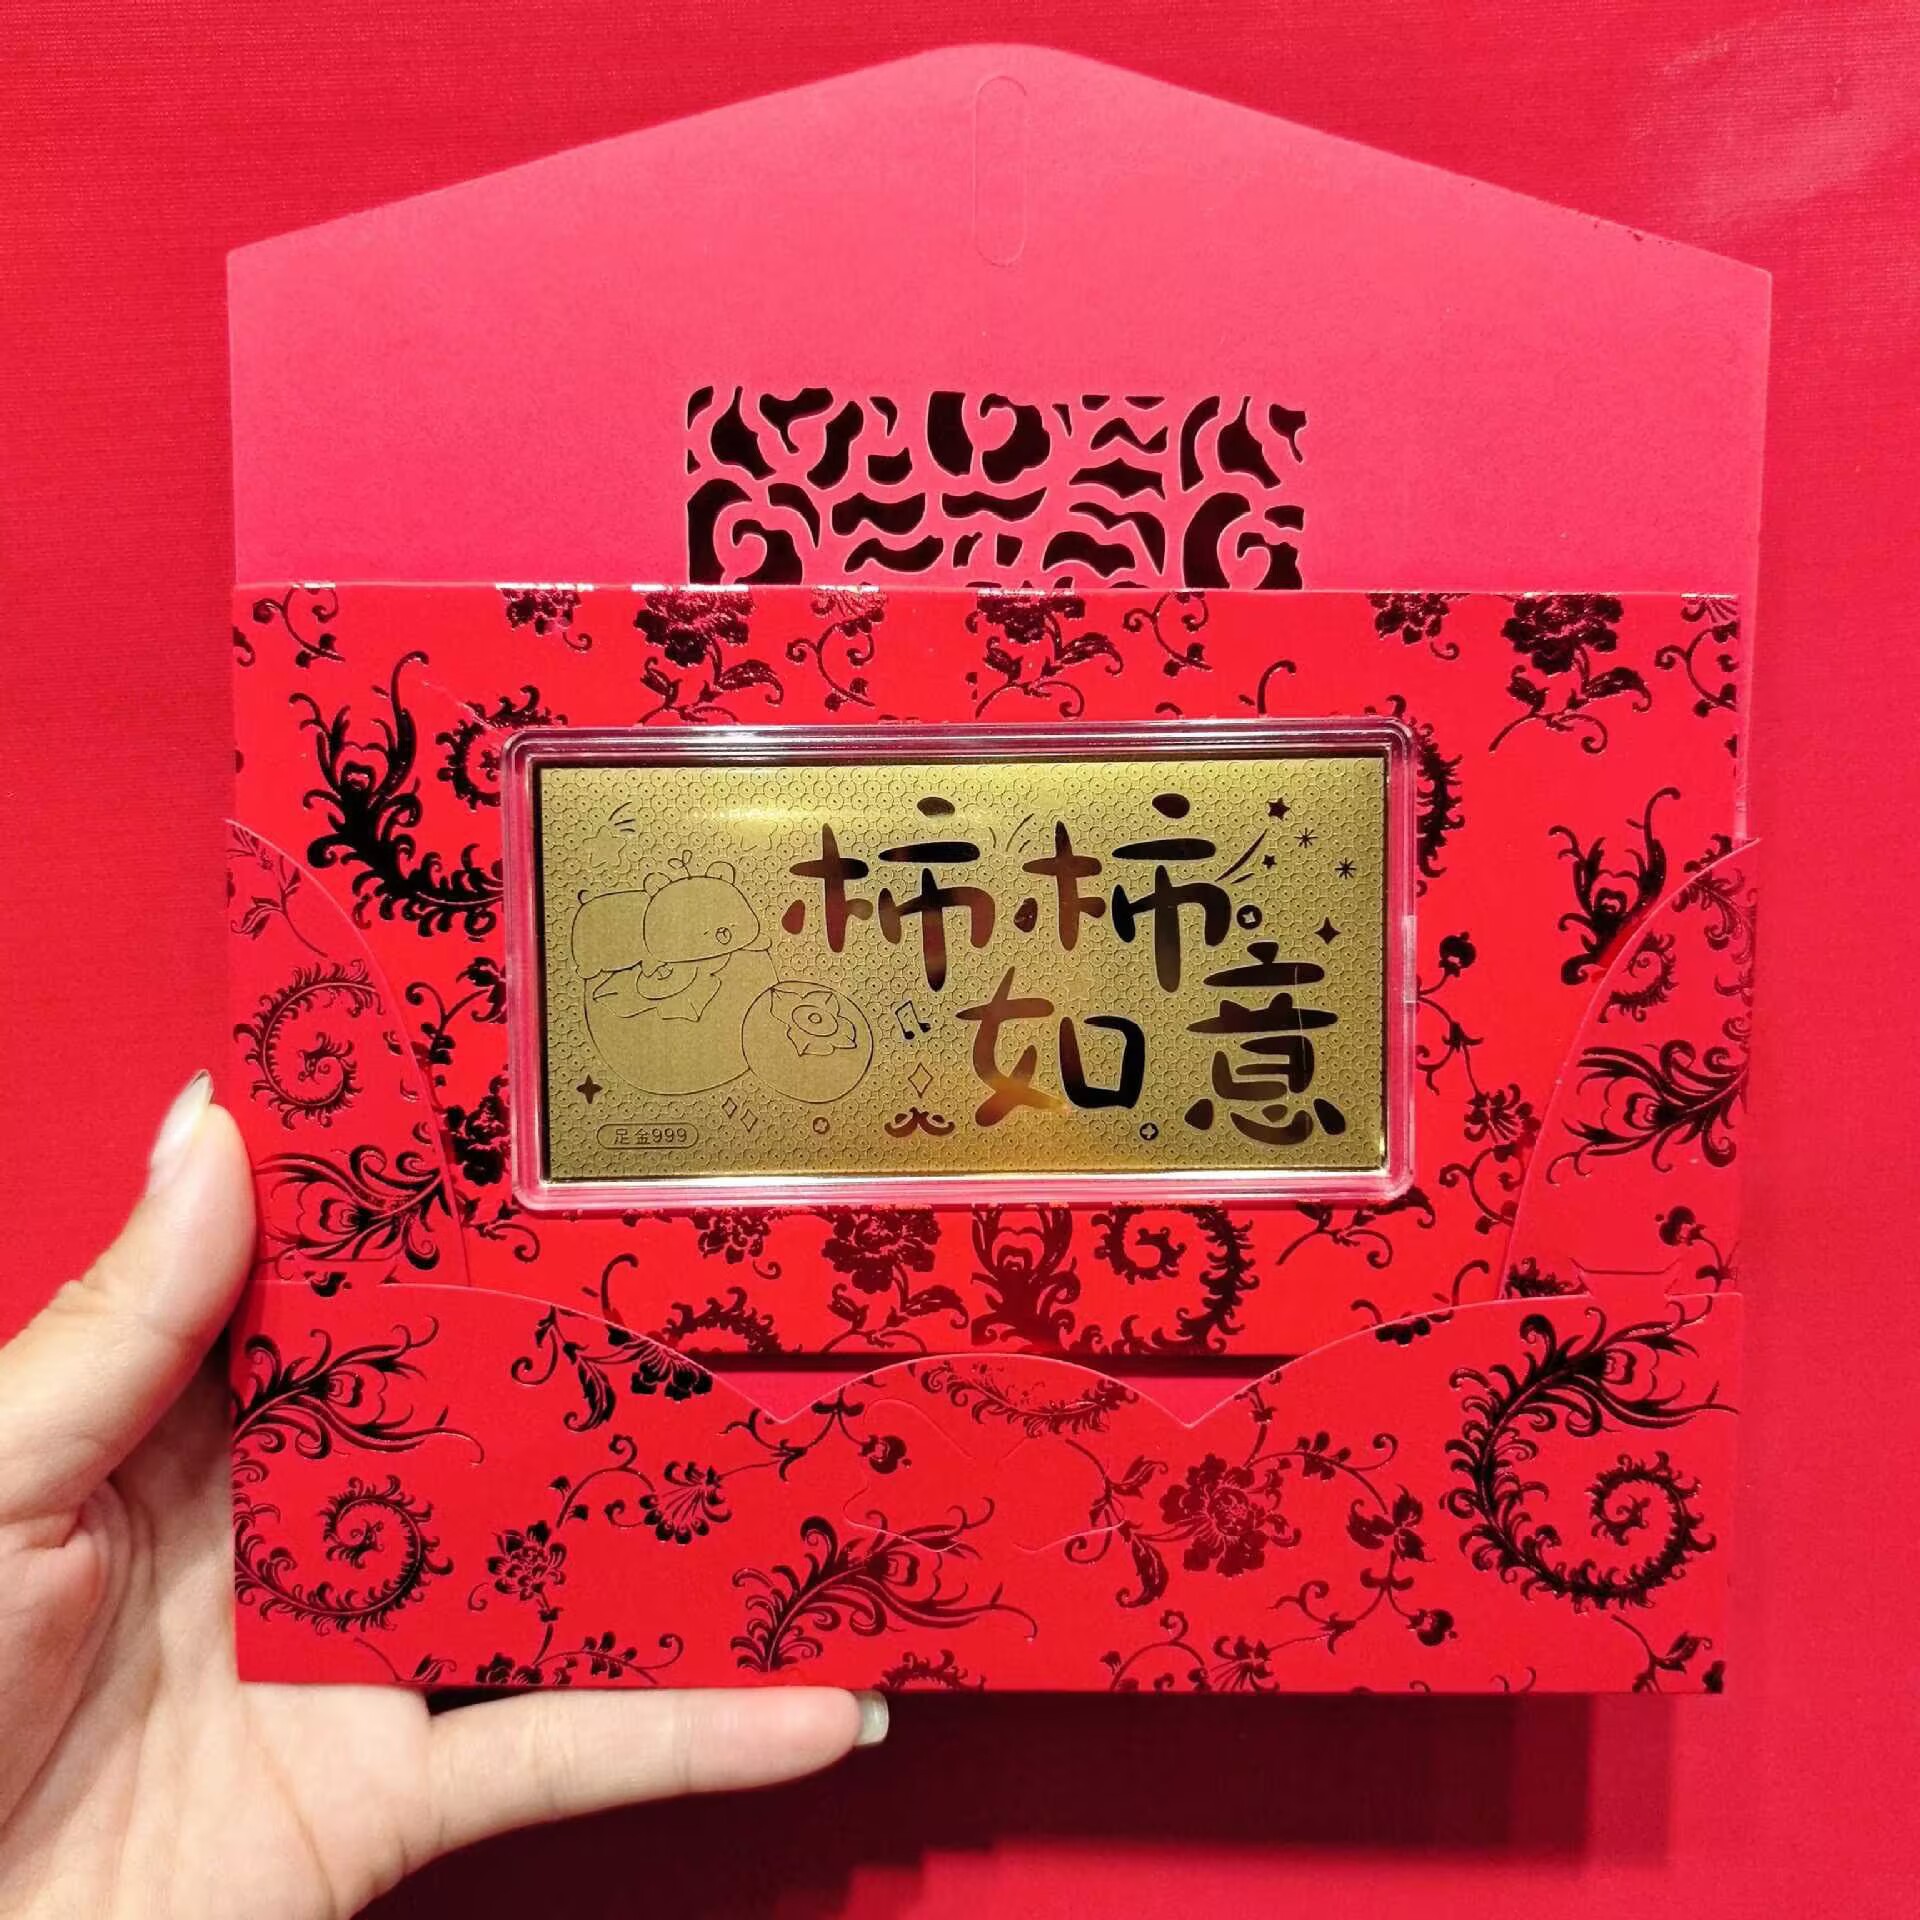 柿柿
如意
足金999